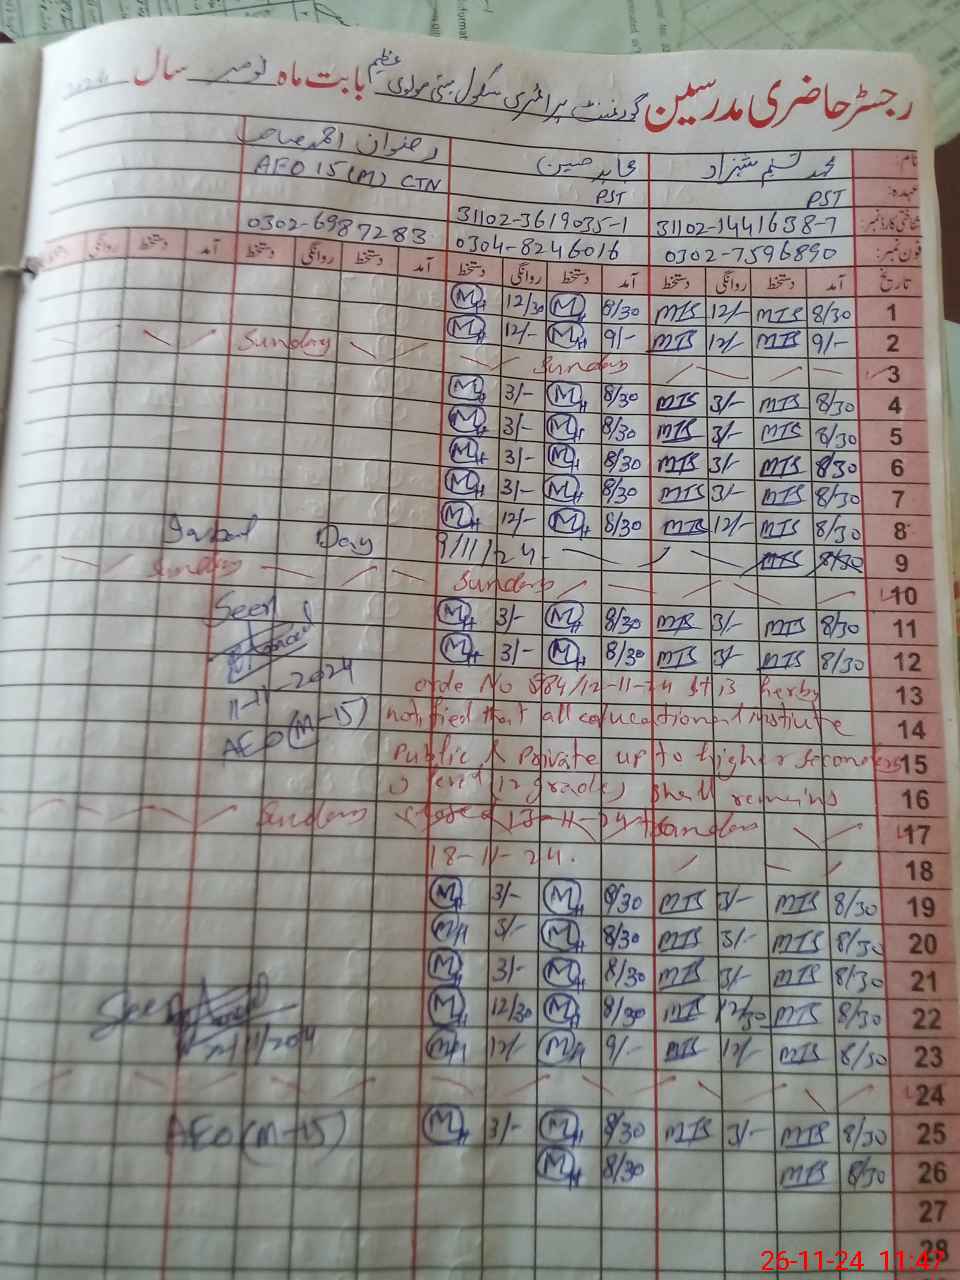 رجسٹر حاضری مدرسین گورنمنٹ پرائمری سکول بستی مولوی عظیم بابت ماہ نومبر سال 2024
نام: محمد تسنیم شہزاد عابد حسین رضوان احمد صاحب
عہدہ: PST PST AEO 15 (M) CTN
شناختی کارڈ نمبر: 31102-1441638-7 31102-3619035-1
فون نمبر: 0302-7596890 0304-8246016 0302-6987283
تاریخ آمد دستخط روانگی دستخط آمد دستخط روانگی دستخط آمد دستخط روانگی دستخط آمد روانگی
1 8/30 MTS 12/- MTS 8/30 MH 12/30 MH
2 9/- MTS 12/- MTS 9/- MH 12/- MH Sunday
3 Sunday
4 8/30 MTS 3/- MTS 8/30 MH 3/- MH
5 8/30 MTS 3/- MTS 8/30 MH 3/- MH
6 8/30 MTS 3/- MTS 8/30 MH 3/- MH
7 8/30 MTS 3/- MTS 8/30 MH 3/- MH
8 8/30 MTS 12/- MTS 8/30 MH 12/- MH
9 8/30 MTS 9/11/24 Iqbal Day
10 Sunday Sunday
11 8/30 MTS 3/- MTS 8/30 MH 3/- MH Seen
12 8/30 MTS 3/- MTS 8/30 MH 3/- MH
13 orde No 584/12-11-24 It is herby 11-11-2024
14 notified that all educational institute AEO (M-15)
15 Public & Private up to higher Secondery
16 level (12 grade) shall remains
17 closed 13-11-24 to Sunday
18 18-11-24.
19 8/30 MTS 3/- MTS 8/30 MH 3/- MH
20 8/30 MTS 3/- MTS 8/30 MH 3/- MH
21 8/30 MTS 3/- MTS 8/30 MH 3/- MH
22 8/30 MTS 12/30 MTS 8/30 MH 12/30 MH Seen
23 8/30 MTS 12/- MTS 9/- MH 12/- MH
24
25 8/30 MTS 3/- MTS 8/30 MH 3/- MH AEO (M-15)
26 8/30 MTS 8/30 MH
27
28
26-11-24 11:47